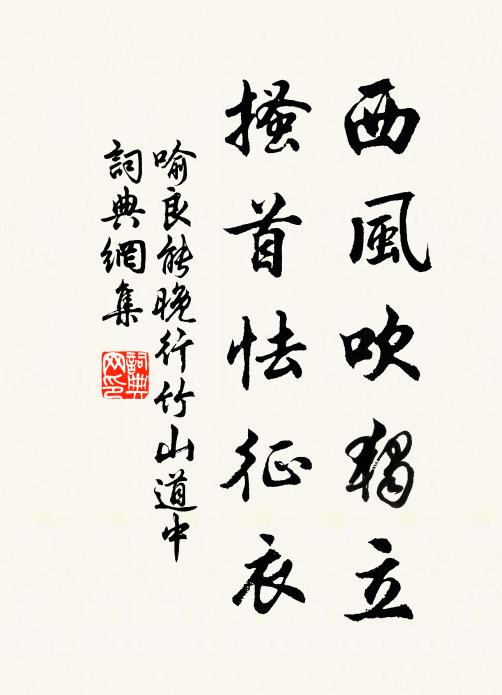 西風吹獨立
搔首怯征衣
喻良能晚行竹山道中
詞典網集
詞典網印